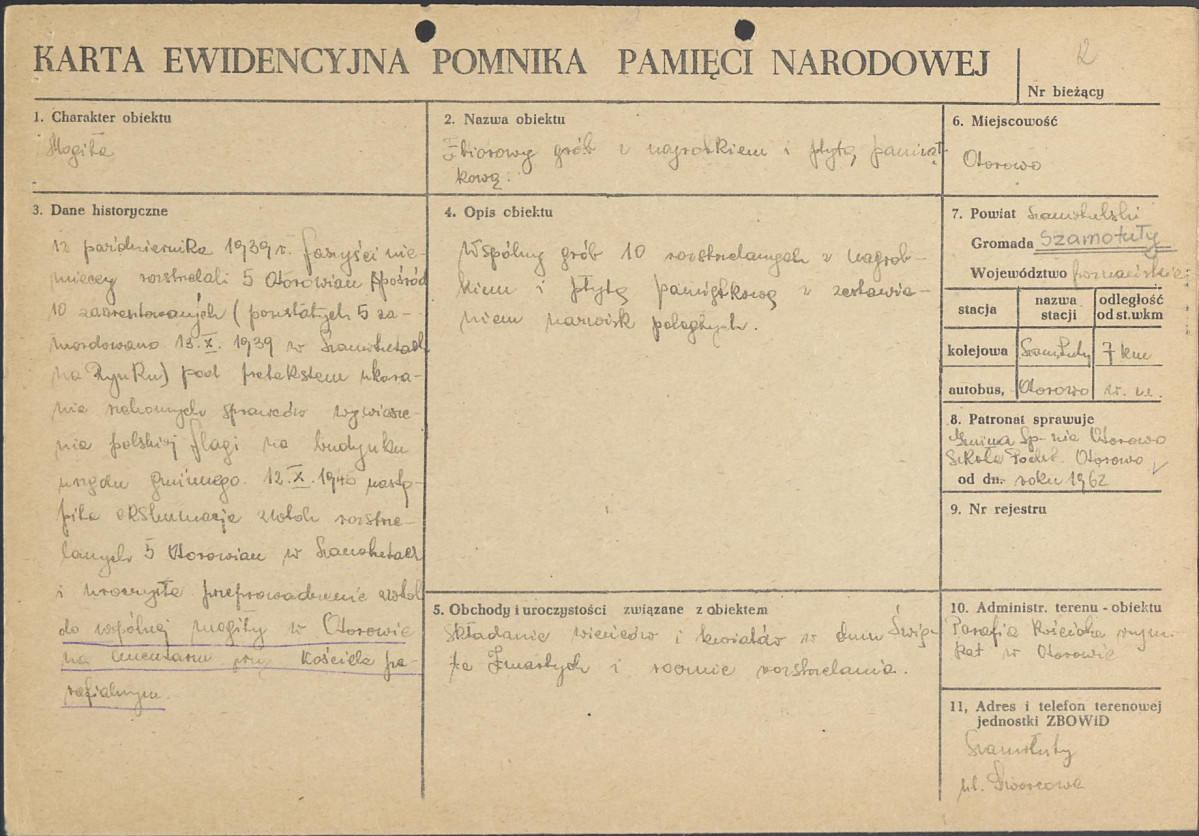 KARTA EWIDENCYJNA POMNIKA PAMIĘCI NARODOWEJ
12
Nr bieżący
1. Charakter obiektu
Mogiła
2. Nazwa obiektu
Zbiorowy grób z nagrobkiem i płytą pamiąt-
kową.
6. Miejscowość
Otorowo
3. Dane historyczne
12 października 1939 r. faszyści nie-
mieccy rozstrzelali 5 Otorowian spośród
10 zaaresztowanych (pozostałych 5 za-
mordowano 13.X.1939 w Szamotułach
na Rynku) pod pretekstem ukara-
nia rzekomych sprawców wywiesze-
nia polskiej flagi na budynku
urzędu gminnego. 12.X.1940 nastą-
piła ekshumacja zwłok rozstrze-
lanych 5 Otorowian w Szamotułach
i uroczyste przeprowadzenie zwłok
do wspólnej mogiły w Otorowie
na cmentarzu przy kościele pa-
rafialnym.
4. Opis obiektu
Wspólny grób 10 rozstrzelanych z nagrob-
kiem i płytą pamiątkową z zestawie-
niem nazwisk poległych.
5. Obchody i uroczystości związane z obiektem
Składanie wieńców i kwiatów w dniu Świę-
ta Zmarłych i rocznie rozstrzelania.
7. Powiat szamotulski
Gromada Szamotuły
Województwo poznańskie
stacja
nazwa stacji
odległość od st. w km
kolejowa Szamotuły 7 km
autobus, Otorowo w. m.
8. Patronat sprawuje
Gminna Sp-nia Otorowo
Szkoła Podst. Otorowo
od dn. roku 1962
9. Nr rejestru
10. Administr. terenu - obiektu
Parafia Kościoła rzym.
kat w Otorowie
11, Adres i telefon terenowej
jednostki ZBOWiD
Szamotuły
ul. Dworcowa